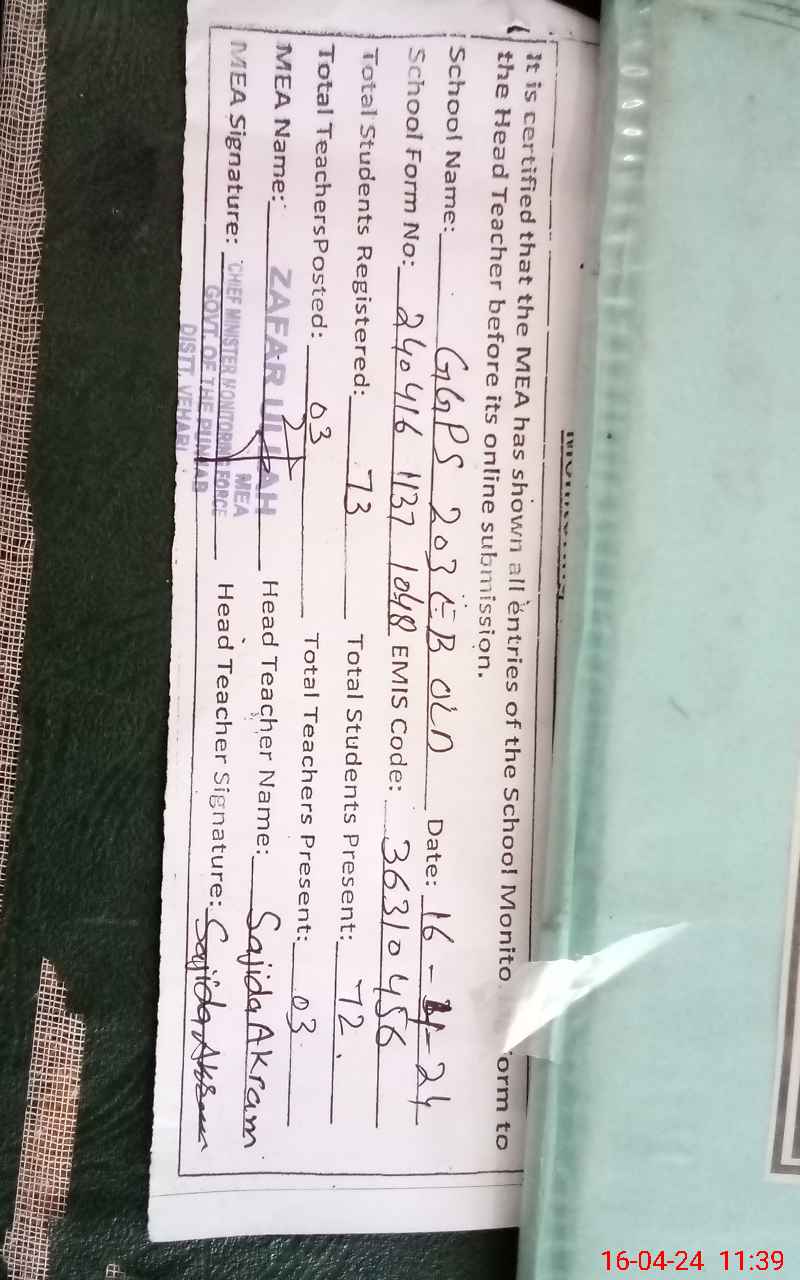 It is certified that the MEA has shown all entries of the School Monito orm to
the Head Teacher before its online submission.
School Name: GGPS 203 EB OLD Date: 16-4-24
School Form No: 240416 1137 1048 EMIS Code: 36310456
Total Students Registered: 73 Total Students Present: 72
Total TeachersPosted: 03 Total Teachers Present: 03
MEA Name: ZAFAR ULLAH Head Teacher Name: Sajida Akram
MEA
MEA Signature: CHIEF MINISTER MONITORING FORCE Head Teacher Signature: Sajida Akram
GOVT. OF THE PUNJAB
DISTT. VEHARI
16-04-24 11:39